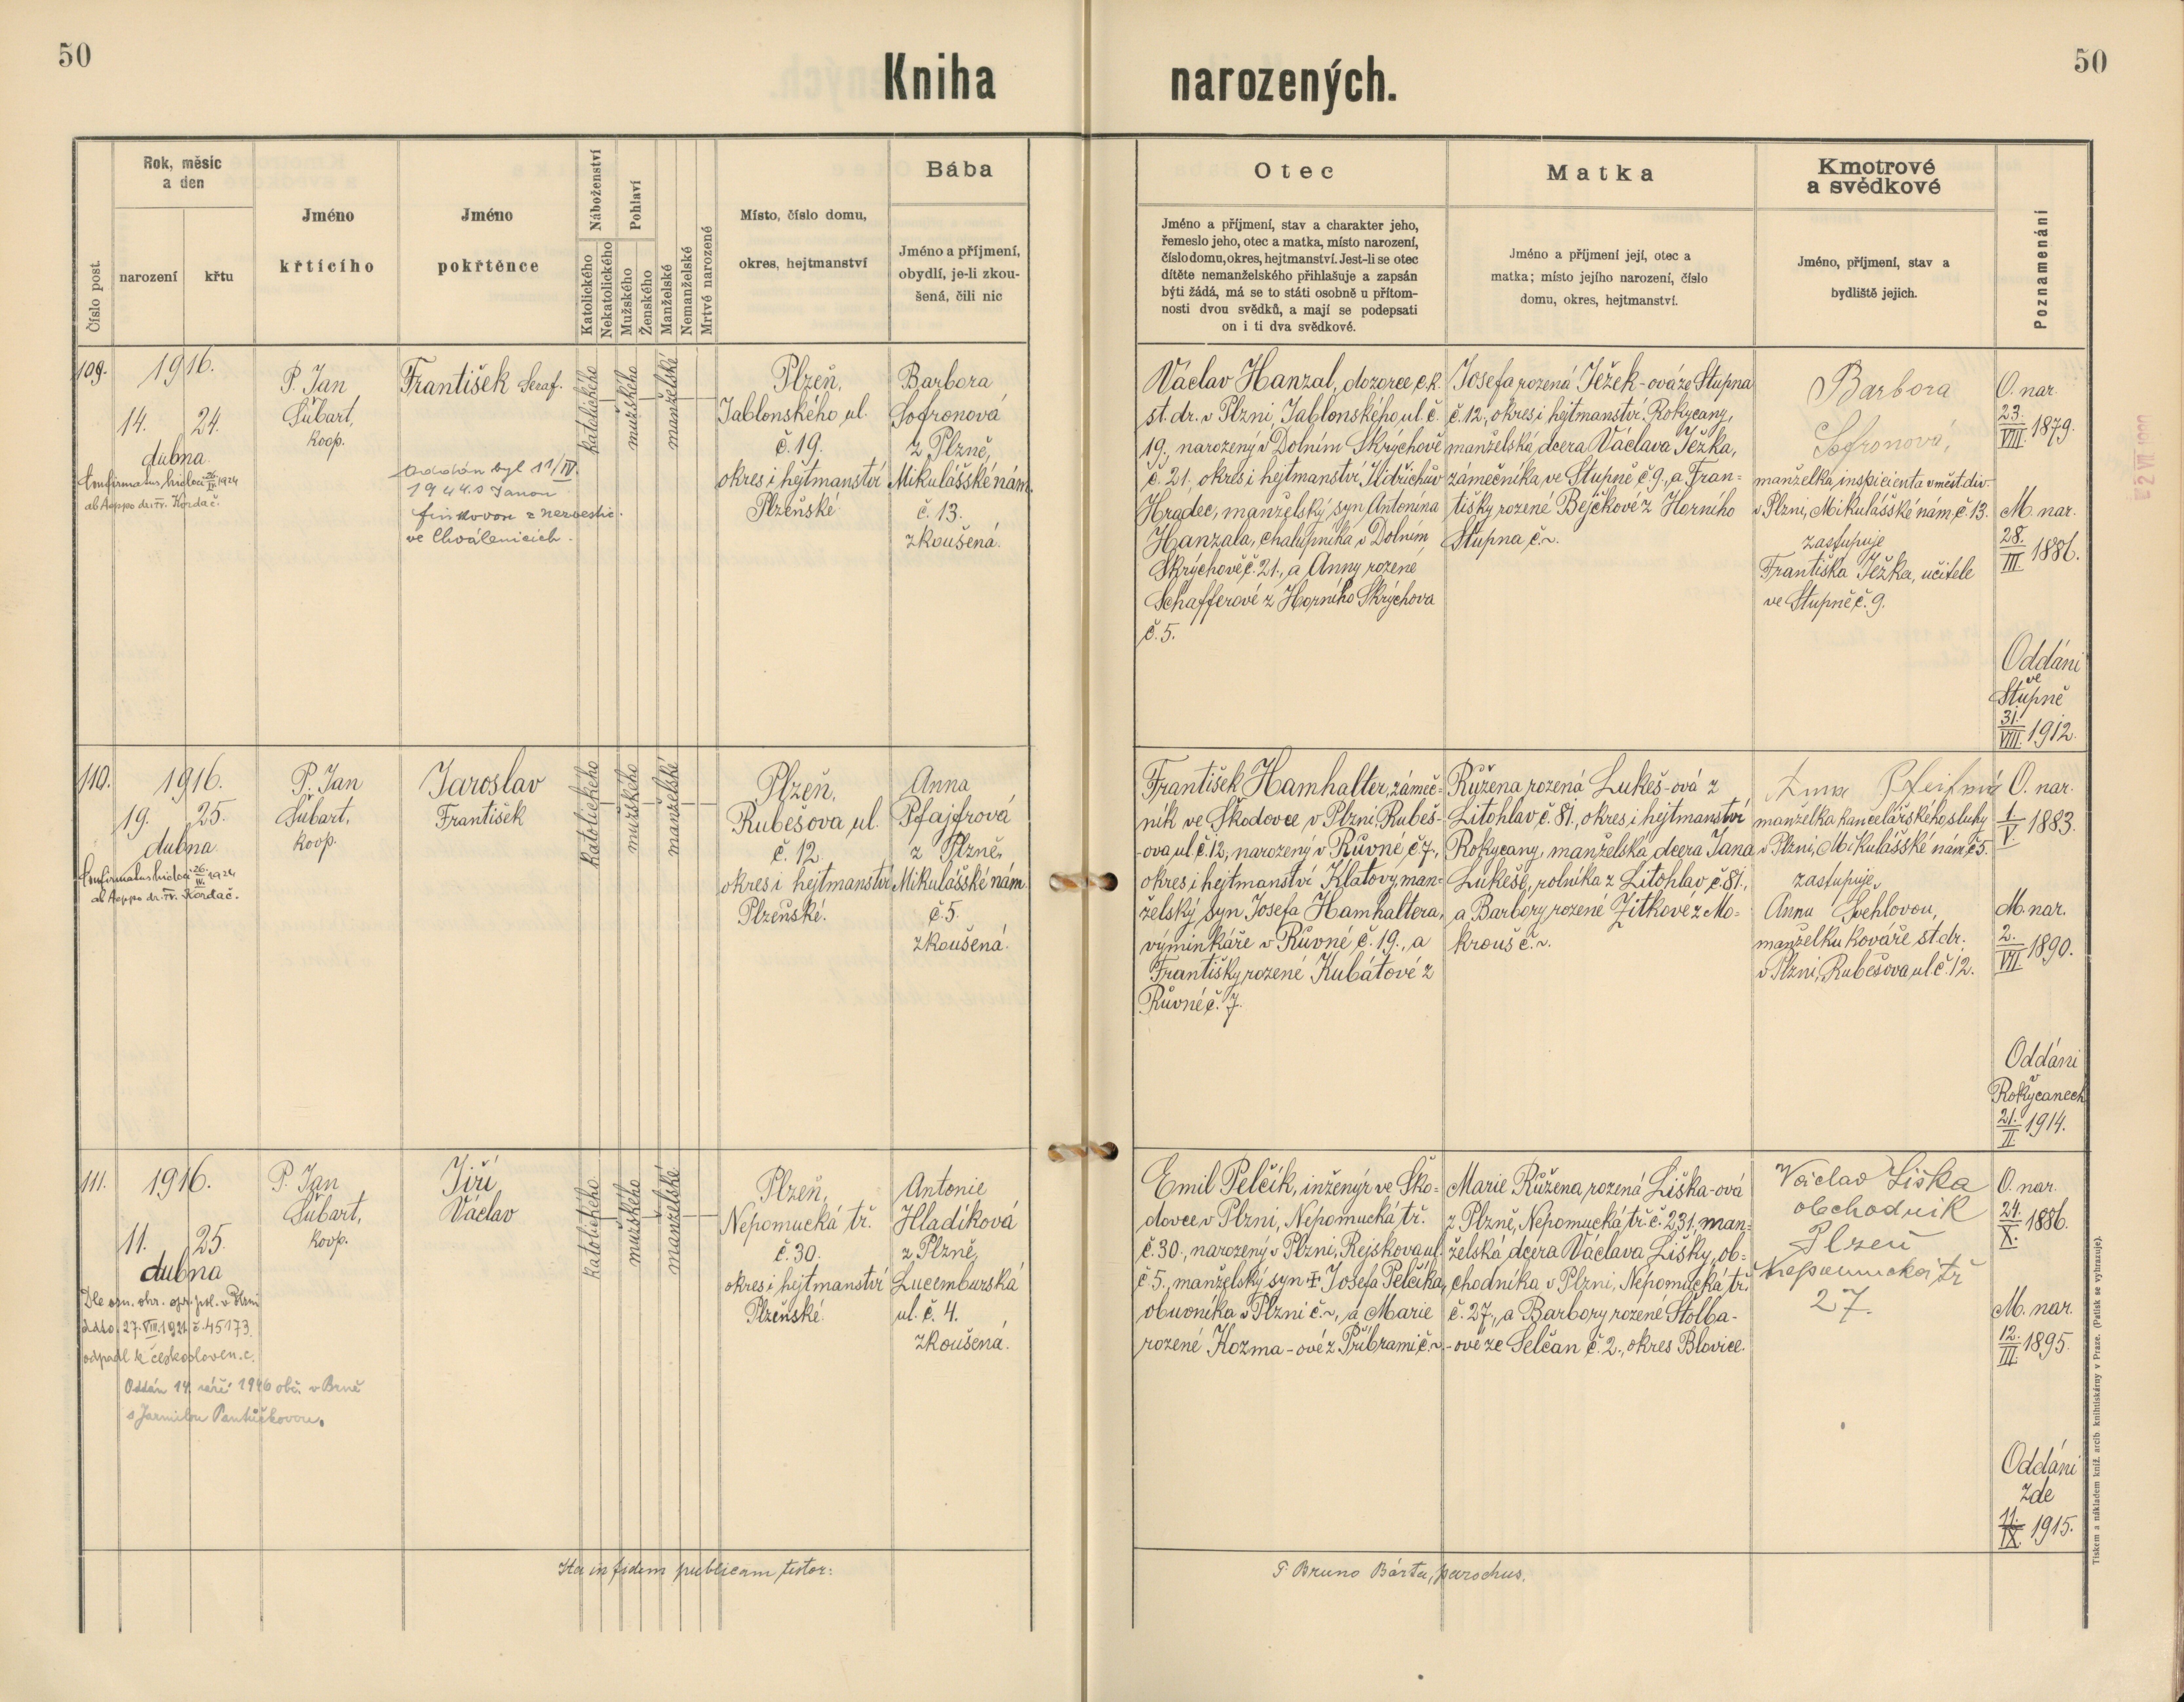 50
50
Kniha narozených.
Číslo post.
Rok, měsíc
a den
narození
křtu
Jméno
křtícího
Jméno
pokřtěnce
Náboženství
Katolického
Nekatolického
Pohlaví
Mužského
Ženského
Manželské
Nemanželské
Mrtvé narozené
Místo, číslo domu,
okres, hejtmanství
Bába
Jméno a příjmení,
obydlí, je-li zkou-
šená, čili nic
Otec
Jméno a příjmení, stav a charakter jeho,
řemeslo jeho, otec a matka, místo narození,
číslo domu, okres, hejtmanství. Jest-li se otec
dítěte nemanželského přihlašuje a zapsán
býti žádá, má se to státi osobně u přítom-
nosti dvou svědků, a mají se podepsati
on i ti dva svědkové.
Matka
Jméno a příjmení její, otec a
matka; místo jejího narození, číslo
domu, okres, hejtmanství.
Kmotrové
a svědkové
Jméno, příjmení, stav a
bydliště jejich.
Poznamenání
109.
1916.
14. 24.
dubna
Confirmatus hic loci 26/IV 1924
ab Aeppo dr. Fr. Kordač.
P. Jan
Šubart,
koop.
František Seraf.
Oddán byl 11/IV.
1944 s Janou
ve Chválenicích.
katolického
mužského
manželské
Plzeň,
Jablonského ul.
č. 19.
okres i hejtmanství
Plzeňské
Barbora
Sofronová
z Plzně,
Mikulášské nám.
č. 13.
zkoušená.
Václav Hanzal, dozorce c.k.
st. dr. v Plzni, Jablonského ul. č.
19., narozený v Dolním Skrýchově
č. 21., okres i hejtmanství Jidřichův
Hradec, manželský syn Antonína
Hanzala, chalupníka v Dolním
Skrýchově č. 21., a Anny rozené
Schafferové z Horního Skrýchova
č. 5.
Josefa rozená Ježek-ová ze Stupna
č. 12., okres i hejtmanství Rokycany,
manželská dcera Václava Ježka,
zámečníka ve Stupně č. 9., a Fran-
tišky rozené Bejčkové z Horního
Stupna č. ~.
Barbora
Sofronová,
manželka inspicienta v měst. div.
v Plzni, Mikulášské nám. č. 13.
zastupuje
Františka Ježka, učitele
ve Stupně č. 9.
O. nar.
23./VIII. 1879.
M. nar.
28./III. 1886.
Oddáni
ve
Stupně
31./VIII. 1912.
110.
1916.
19. 25.
dubna
Confirmatus hic loci 26./IV. 1924
ab Aeppo dr. Fr. Kordač.
P. Jan
Šubart,
koop.
Jaroslav
František
katolického
mužského
manželské
Plzeň,
Rubešova ul.
č. 12.
okres i hejtmanství
Plzeňské.
Anna
Pfajfrová
z Plzně,
Mikulášské nám.
č. 5.
zkoušená.
František Hamhalter, zámeč-
ník ve Škodovce v Plzni, Rubeš-
ova ul. č. 12., narozený v Růvné č. 7.,
okres i hejtmanství Klatovy, man-
želský syn Josefa Hamhaltera,
výminkáře v Růvné č. 19., a
Františky rozené Kubátové z
Růvné č. 7.
Růžena rozená Lukeš-ová z
Litohlav č. 81., okres i hejtmanství
Rokycany, manželská dcera Jana
Lukeše, rolníka z Litohlav č. 81.,
a Barbory rozené Žitkové z Mo-
krouš č. ~.
Anna
manželka kancelářského sluhy
v Plzni, Mikulášské nám. č. 5.
zastupuje
Annu Švehlovou,
manželku kováře st. dr.
v Plzni, Rubešova ul. č. 12.
O. nar.
1/V 1883.
M. nar.
2./VII. 1890.
Oddáni
v
Rokycanech
21./II. 1914.
111.
1916.
11. 25.
dubna
Dle ozn. okr. spr. pol. v Plzni
ddto. 27. VIII. 1921 č. 45173.
odpadl k českosloven. c.
Oddán 14. září 1946 obč. v Brně
s Jarmilou Pantůčkovou.
P. Jan
Šubart,
koop.
Jiří
Václav
katolického
mužského
manželské
Plzeň,
Nepomucká tř.
č. 30.
okres i hejtmanství
Plzeňské
Antonie
Hladíková
z Plzně,
Lucemburská
ul. č. 4.
zkoušená.
Emil Pelčík, inženýr ve Ško-
dovce v Plzni, Nepomucká tř.
č. 30., narozený v Plzni, Rejskova ul.
č. 5., manželský syn † Josefa Pelčíka,
obuvníka v Plzni č. ~, a Marie
rozené Kozma-ové z Příbrami č. ~.
Marie Růžena rozená Liška-ová
z Plzně, Nepomucká tř. č. 231., man-
želská dcera Václava Lišky, ob-
chodníka v Plzni, Nepomucká tř.
č. 27., a Barbory rozené Štolba-
-ové ze Selčan č. 2., okres Blovice.
Václav Liška
obchodník
Plzeň
Nepomucká tř
27.
O. nar.
24./X. 1886.
M. nar.
12./III. 1895.
Oddáni
zde
11./IX. 1915.
Ita in fidem publicam testor:
P. Bruno Bárta, parochus.
Tiskem a nákladem kníž. arcib. knihtiskárny v Praze. (Patisk se vyhrazuje).